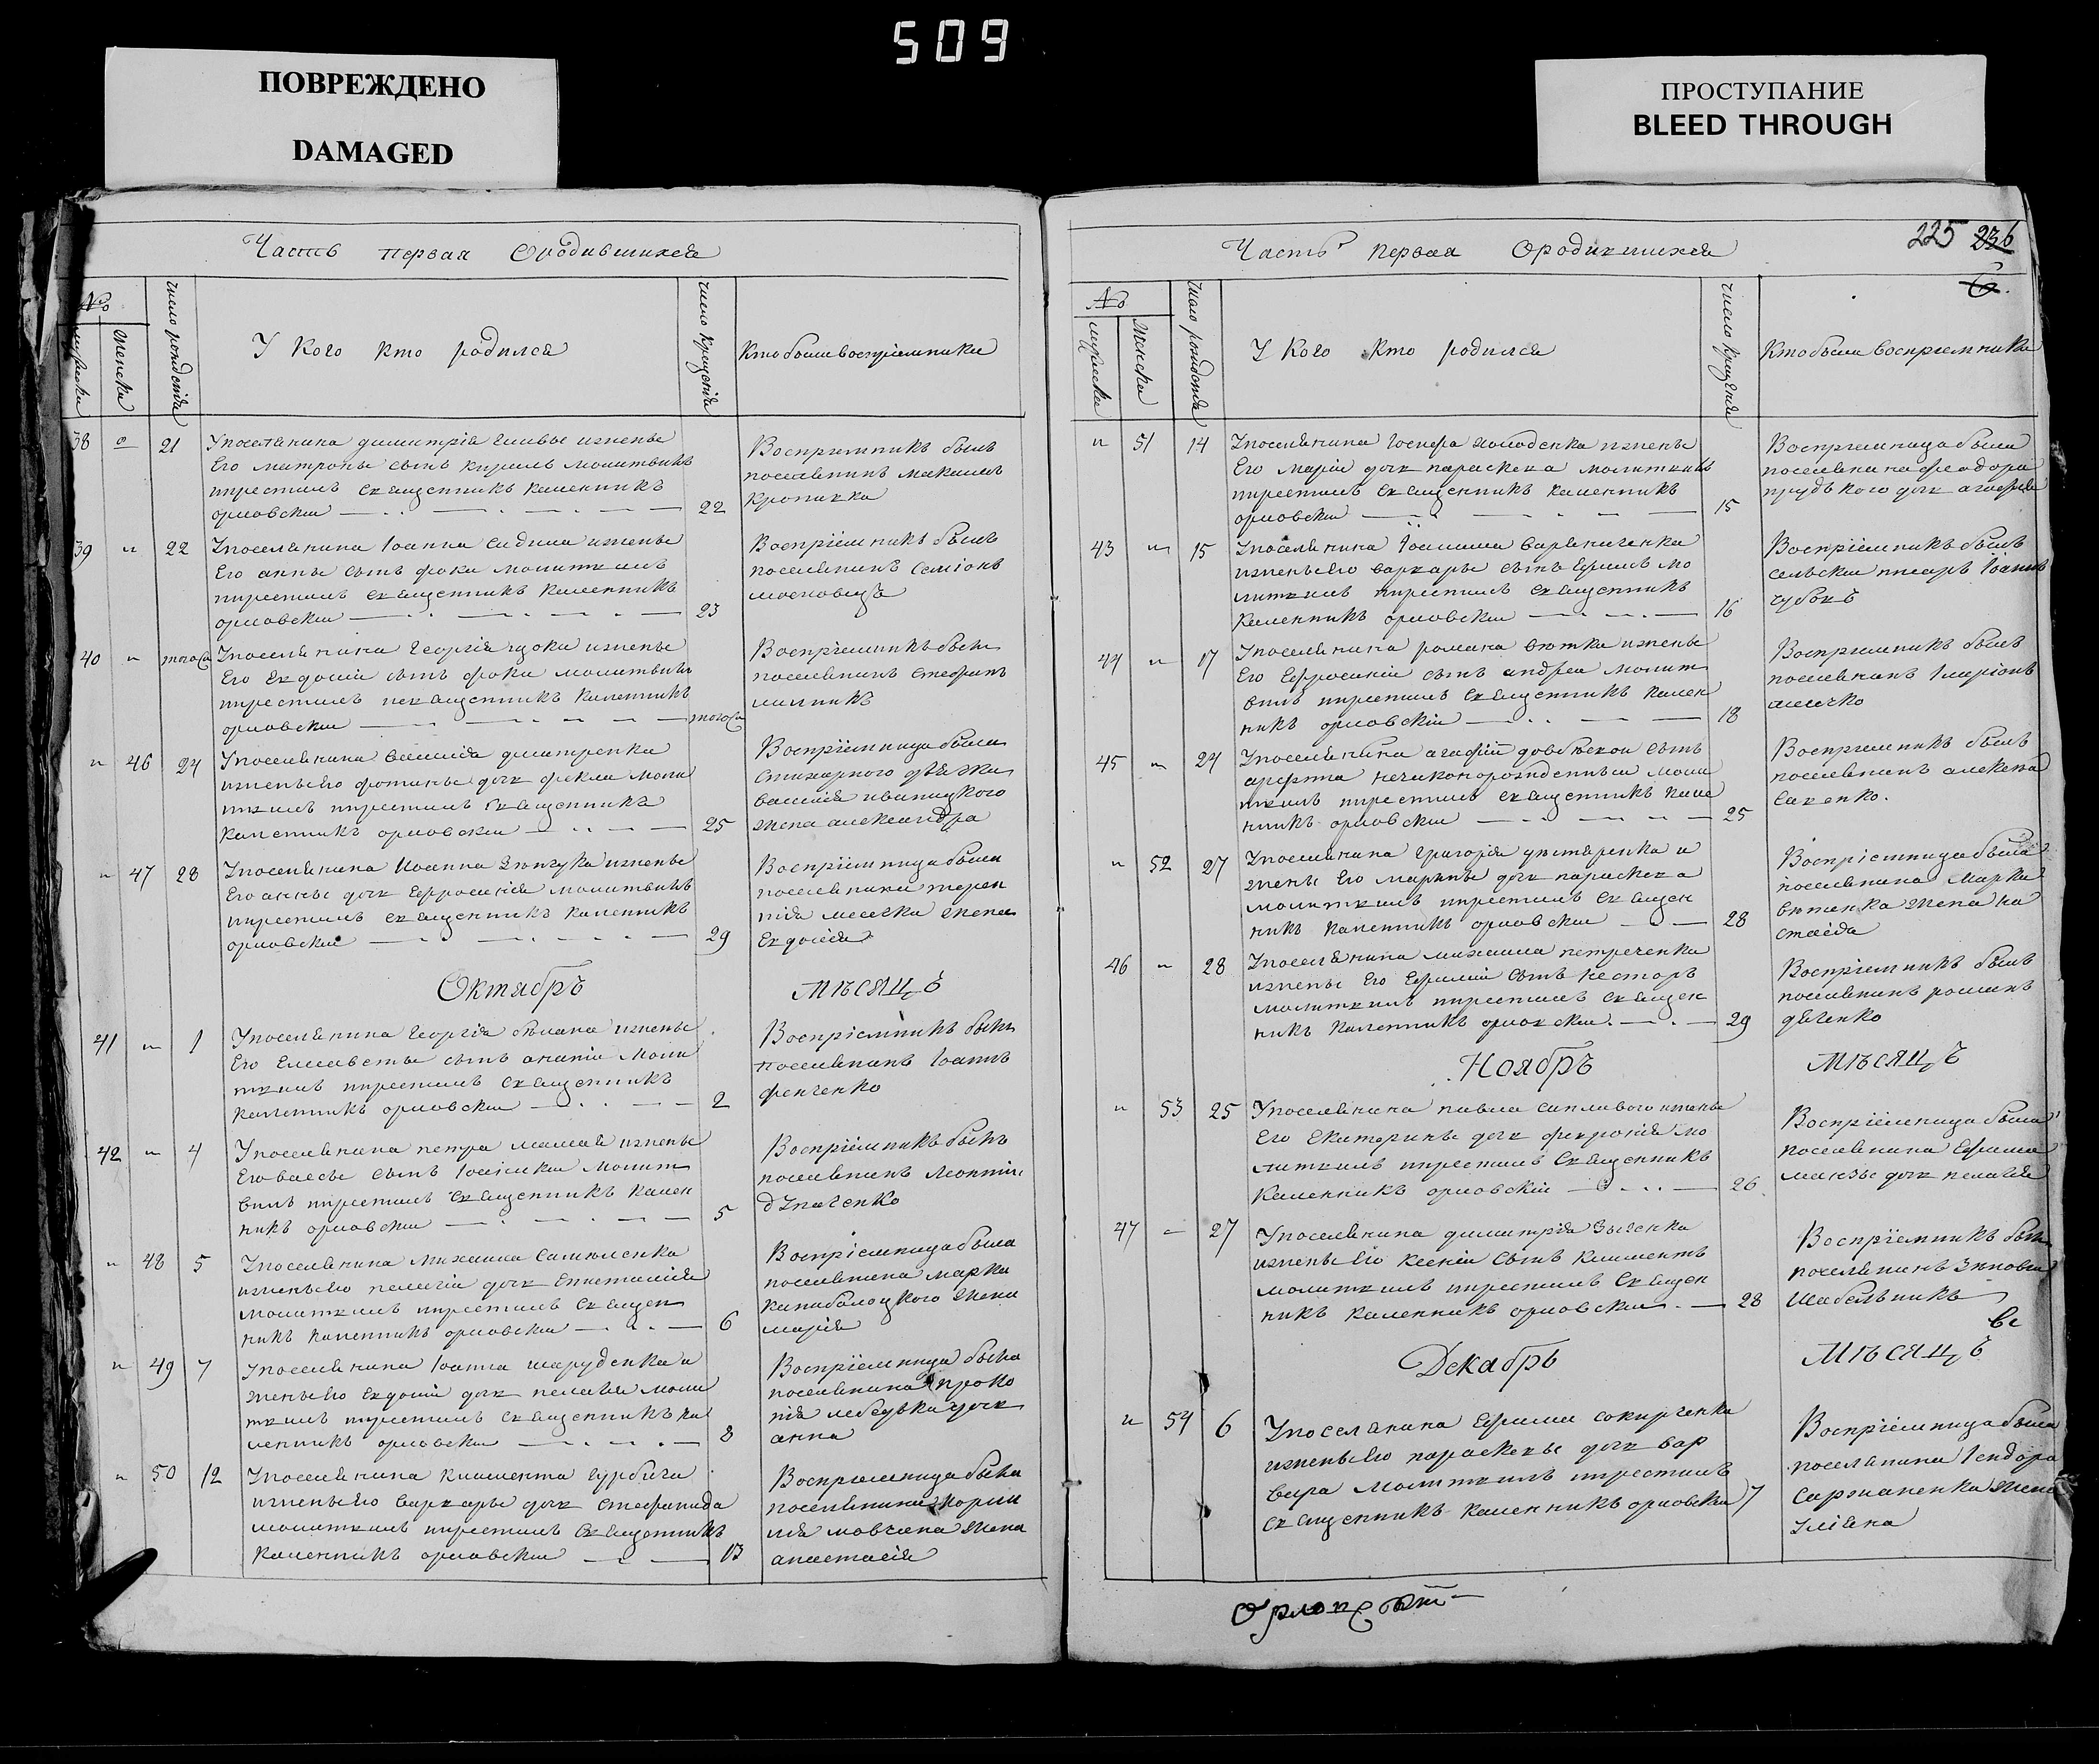 509
ПОВРЕЖДЕНО
DAMAGED
ПРОСТУПАНИЕ
BLEED THROUGH
Часть первая Ородившихся
№
мужески
женски
число рождения
У кого кто родился
число крещения
Кто были восприемники
38 21 Упоселянина димитрія изжены
Его матроны сынъ кирилъ молитвилъ
икрестилъ священникъ каленникъ
орловски 22
Восприемникъ былъ
поселянинъ максимъ
39 22 Упоселянина Іоанна изжены
Его анны сынъ фока молитвилъ
икрестилъ священникъ каленникъ
орловски 23
Воспріемникъ былъ
поселянинъ Семіонъ
московецъ
40 тогож Упоселянина Георгія изжены
Его Евдокіи сынъ фока молитвилъ
икрестилъ священникъ каленникъ
орловски тогож
Воспріемникъ былъ
поселянинъ Стефанъ
46 24 Упоселянина василія дмитренка
изжены Его фотины дочь фекла моли
твилъ икрестилъ священникъ
каленникъ орловски 25
Воспріемница была
василія
жена александра
47 28 Упоселянина Иоанна изжены
Его анны дочь Ефросинія молитвилъ
икрестилъ священникъ каленникъ
орловски 29
Воспріемница была
поселянина терен
тія жена
Евдокія
Октябръ мѣсяцъ
41 1 Упоселянина Георгія бѣлана изжены
Его Елисаветы сынъ ананіи моли
твилъ икрестилъ священникъ
каленникъ орловски 2
Воспріемникъ былъ
поселянинъ Іоаннъ
фенченко
42 4 Упоселянина петра мамая изжены
Его сынъ молит
вилъ икрестилъ священникъ кален
никъ орловски 5
Воспріемникъ былъ
поселянинъ леонтіи
48 5 Упоселянина михаила Самоленка
изжены Его пелагіи дочь
молитвилъ икрестилъ священ
никъ каленникъ орловски 6
Воспріемница была
поселянина марка
жена
марія
49 7 Упоселянина Іоанна шаруденка и
жены Его Евдокіи дочь пелагія моли
твилъ икрестилъ священникъ ка
ленникъ орловски 8
Воспріемница была
поселянина проко
пія дочь
анна
50 12 Упоселянина климента гурбича
изжены Его варвары дочь Стефанида
молитвилъ икрестилъ священникъ
каленникъ орловски 13
Восприемница была
поселянина корни
лія мовчана жена
анастасія
Часть Первая Ородившихся
225 236
6.
№
мужески
женски
число рождения
У кого кто родился
число крещения
Кто были восприемники
51 14 Упоселянина Іосифа изжены
Его маріи дочь параскева молитвилъ
икрестилъ священникъ каленникъ
орловски 15
Восприемница была
поселянина феодора
дочь агафія
43 15 Упоселянина варениченка
изжены Его варвары сынъ Ефимъ мо
литвилъ икрестилъ священникъ
каленникъ орловски 16
Воспріемникъ былъ
сельски писарь Іоаннъ
чубокъ
44 17 Упоселянина романа изжены
Его Ефросиніи сынъ андреи молит
вилъ икрестилъ священникъ кален
никъ орловскіи 18
Восприемникъ былъ
поселянинъ Іларіонъ
45 24 Упоселянина агафіи довбескои сынъ
арефта незаконорожденныи моли
твилъ икрестилъ священникъ кале
нникъ орловски 25
Восприемникъ былъ
поселянинъ алексіи
савенко.
52 27 Упоселянина григорія и
жены Его марины дочь параскева
молитвилъ икрестилъ священ
никъ каленникъ орловски 28
Воспріемница была
поселянина марка
жена на
стасія
46 28 Упоселянина михаила петреченка
изжены Его Ефиміи сынъ несторъ
молитвилъ икрестилъ священ
никъ каленникъ орловски 29
Воспріемникъ былъ
поселянинъ романъ
дяченко
Ноябръ мѣсяцъ
53 25 Упоселянина павла сапливого изжены
Его Екатерины дочь февронія мо
литвилъ икрестилъ священникъ
каленникъ орловскіи 26
Воспріемница была
поселянина Ефима
дочь пелагія
47 27 Упоселянина димитрія
изжены Его ксеніи сынъ климентъ
молитвилъ икрестилъ священ
никъ каленникъ орловски 28
Воспріемникъ былъ
поселянинъ Зиновіи
шабельникъ
Декабрь мѣсяцъ
54 6 Упоселянина Ефима сокирченка
изжены Его параскевы дочь вар
вара молитвилъ икрестилъ
священникъ каленникъ орловски 7
Воспріемница была
поселянина
жена
Уліяна